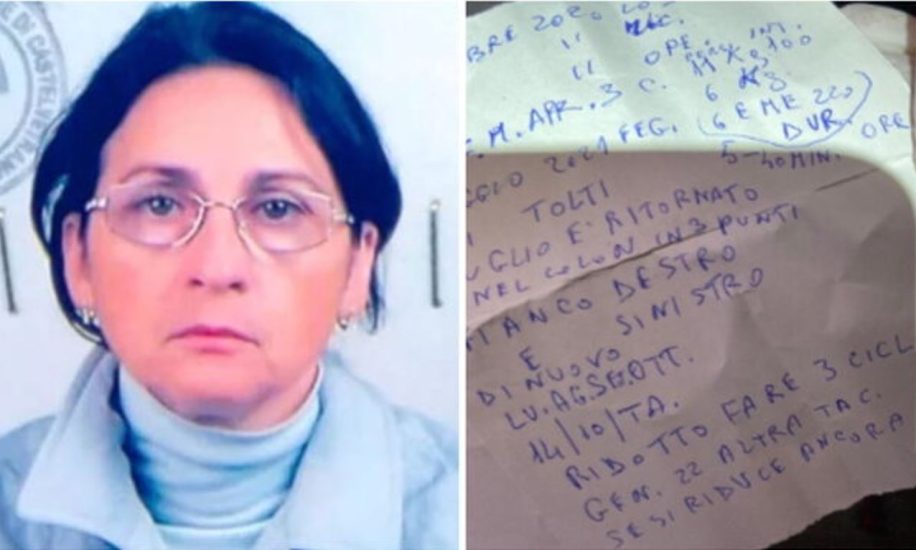 E DI CASTELVETRAN
BRE 2020
11
11 OPE. INT.
M. APR. 3 C. 6
GGIO 2021 FEG. (6 E ME 220)
DUR. ORE
5-40 MIN.
I TOLTI
UGLIO E' RITORNATO
NEL COLON IN 3 PUNTI
FIANCO DESTRO
E SINISTRO
DI NUOVO
LU. AG. SE. OTT.
14/10/TA.
RIDOTTO FARE 3 CICL
GEN. 22 ALTRA TAC.
SE SI RIDUCE ANCORA